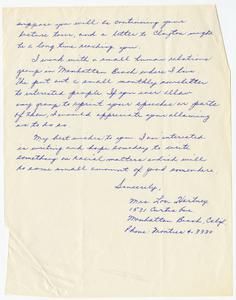 suppose you will be continuing your
lecture tour, and a letter to Clayton might
be a long time reaching you.
I work with a small human relations
group in Manhattan Beach where I live.
We put out a small monthly newsletter
to interested people. If you ever allow
any group to reprint your speeches or parts
of them, I would appreciate your allowing
us to do so.
My best wishes to you. I am interested
in writing and hope someday to write
something on racial matters which will
do some small amount of good somewhere.
Sincerely,
Mrs. Lon
1531 Curtis Ave
Manhattan Beach, Calif.
Phone: Frontier 4-3330